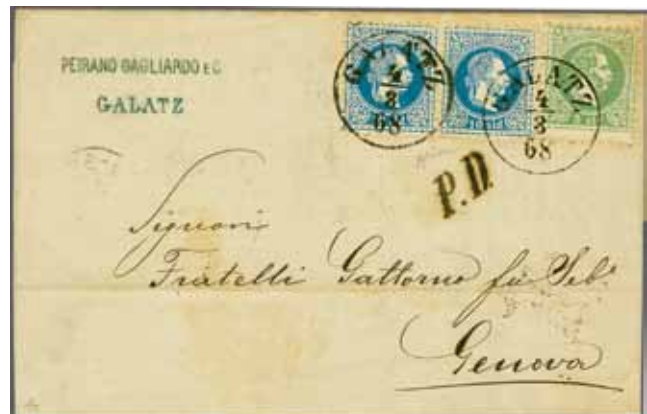 PEIRANO GAGLIARDO E C.
GALATZ
GALATZ
4
3
68
GALATZ
4
3
68
P.D.
Signori
Fratelli Gattorno fu Seb.
Genova